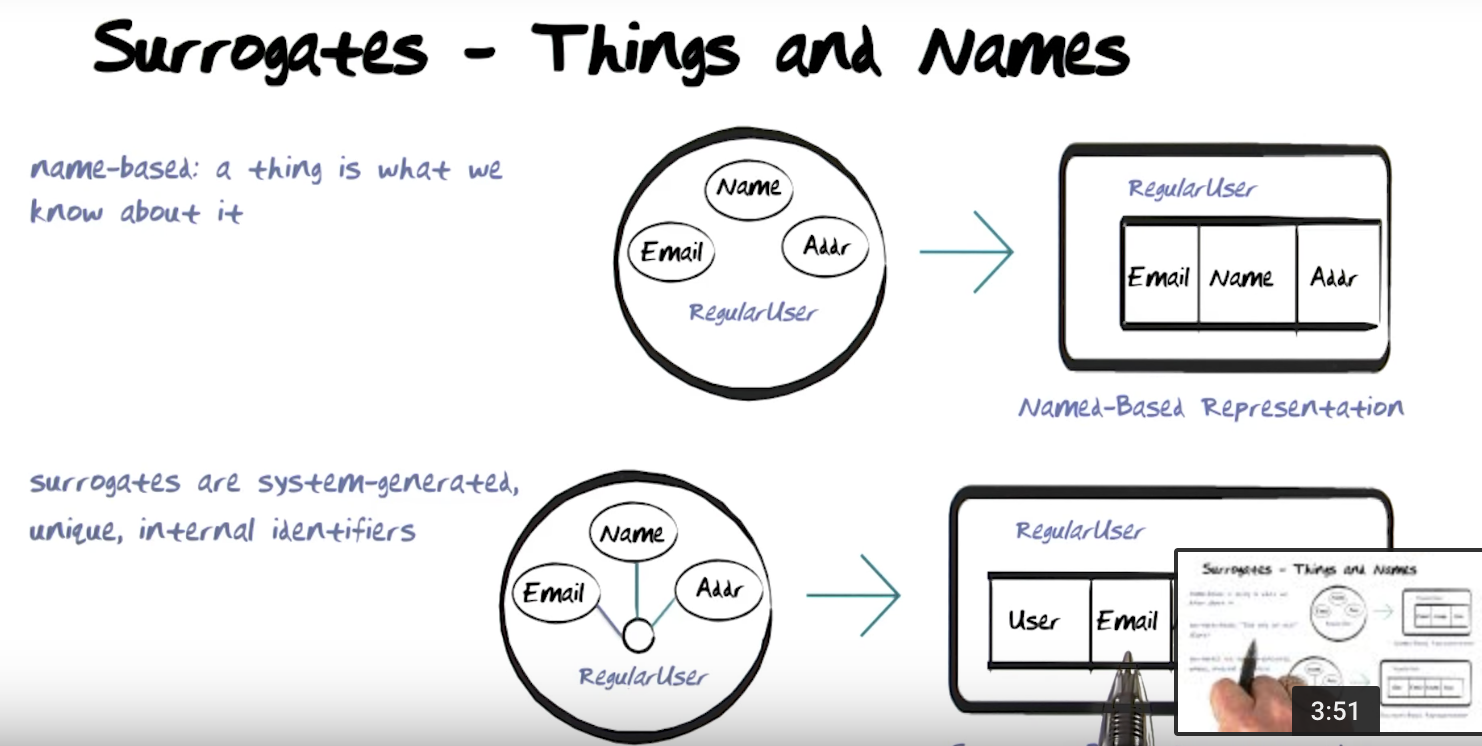 Surrogates - Things and Names
name-based: a thing is what we
know about it
Name
Email
Addr
RegularUser
RegularUser
Email Name Addr
Named-Based Representation
surrogates are system-generated,
unique, internal identifiers
Name
Email
Addr
RegularUser
RegularUser
User Email
Surrogates - Things and Names
3:51